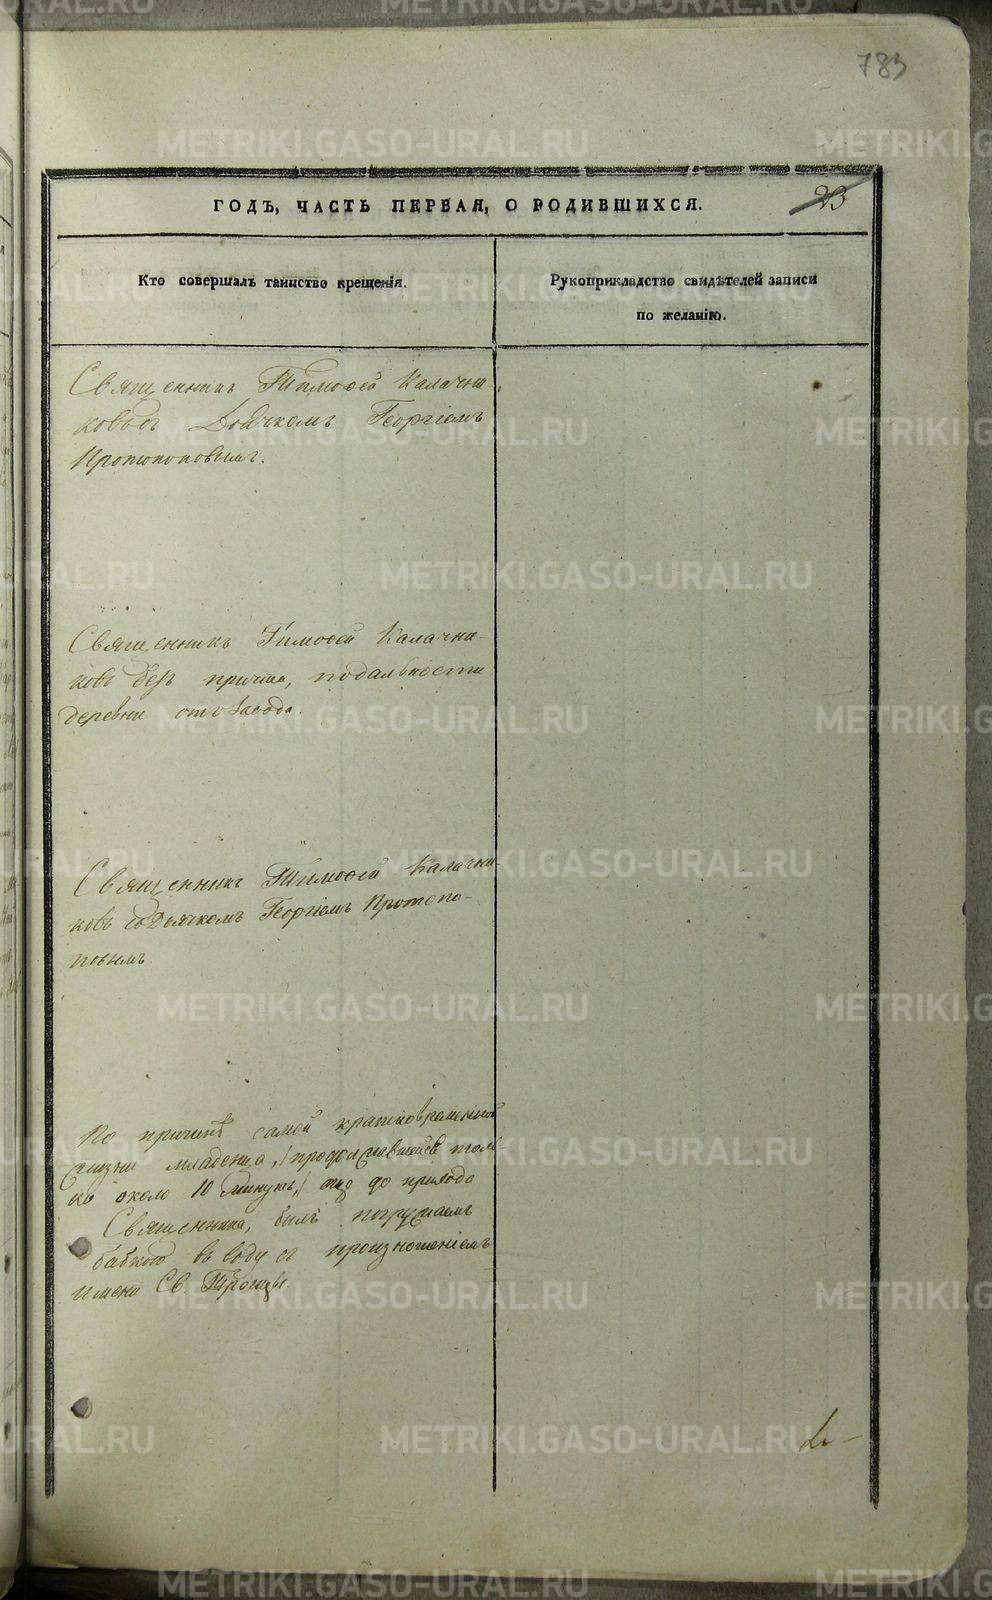 783
ГОДЪ, ЧАСТЬ ПЕРВАЯ, О РОДИВШИХСЯ.
23
Кто совершалъ таинство крещенія.
Рукоприкладство свидѣтелей записи
по желанію.
Священникъ Тимоѳей Калачни-
ковъ съ Дьячкомъ Георгіемъ
Протопоповымъ.
Священникъ Тимоѳей Калачни-
ковъ безъ причта, подальности
деревни отъ Завода.
Священникъ Тимоѳей Калачни-
ковъ съ Дьячкомъ Георгіемъ Протопо-
повымъ
По причинѣ самой кратковременной
жизни младенца, /продолжавшейся толь
ко около 10 минутъ,/ до прихода
Священника, былъ погружаемъ
бабкою въ воду съ произношеніемъ
имени Св. Троицы.
METRIKI.GASO-URAL.RU